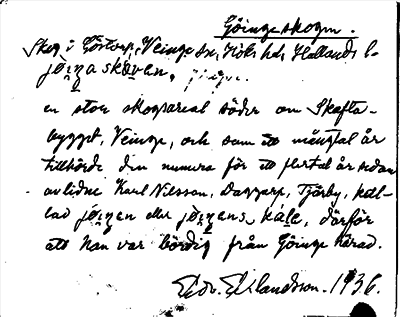 Göingeskogen.
Skog i Göstorp, Veinge sn, Höks hd, Hallands l.
jøingaskåven,
en stor skogsareal söder om Skafta-
bygget, Veinge, och som ett mångtal år
tillhörde den numera för ett flertal år sedan
avlidne Karl Nilsson, Daggarp, Tjärby, kal-
lad jøingen eller jøingens kále, därför
att han var bördig från Göinge härad.
Edv. Eklandsson. 1936.